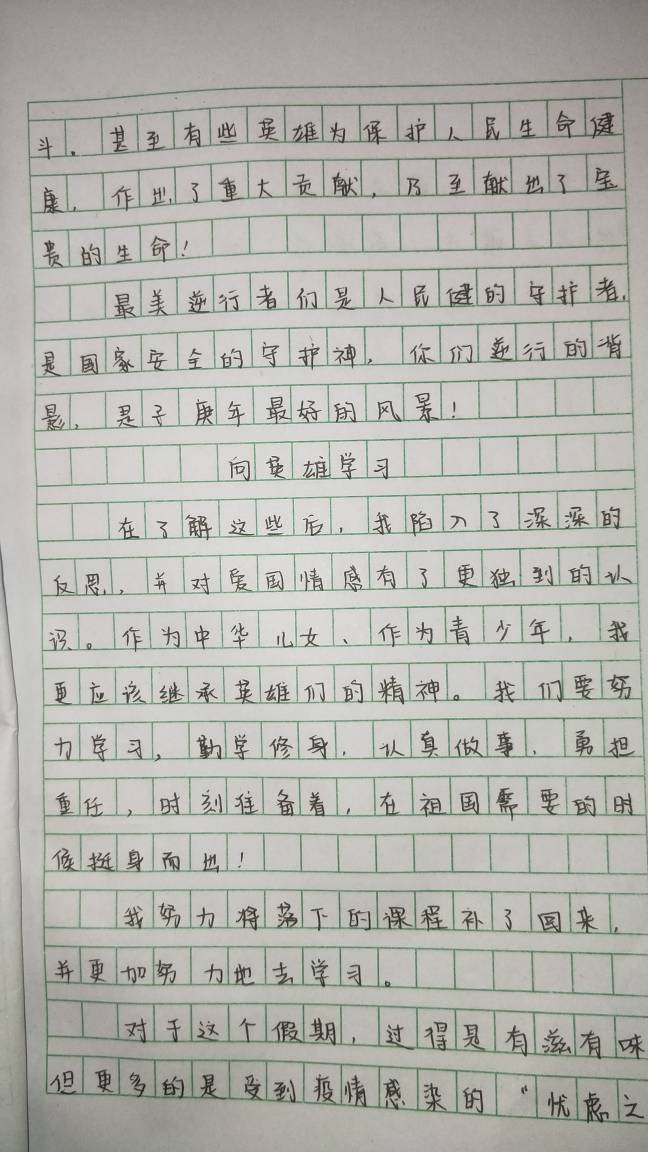 斗。甚至有些英雄为保护人民生命健
康，作出了重大贡献，乃至献出了宝
贵的生命！
最美逆行者们是人民健的守护者，
是国家安全的守护神，你们逆行的背
影，是子庚年最好的风景！
向英雄学习
在了解这些后，我陷入了深深的
反思，并对爱国情感有了更独到的认
识。作为中华儿女、作为青少年，我
更应该继承英雄们的精神。我们要努
力学习，勤学修身，认真做事，勇担
重任，时刻准备着，在祖国需要的时
候挺身而出！
我努力将落下的课程补了回来，
并更加努力地去学习。
对于这个假期，过得是有滋有味
但更多的是受到疫情感染的“忧虑之